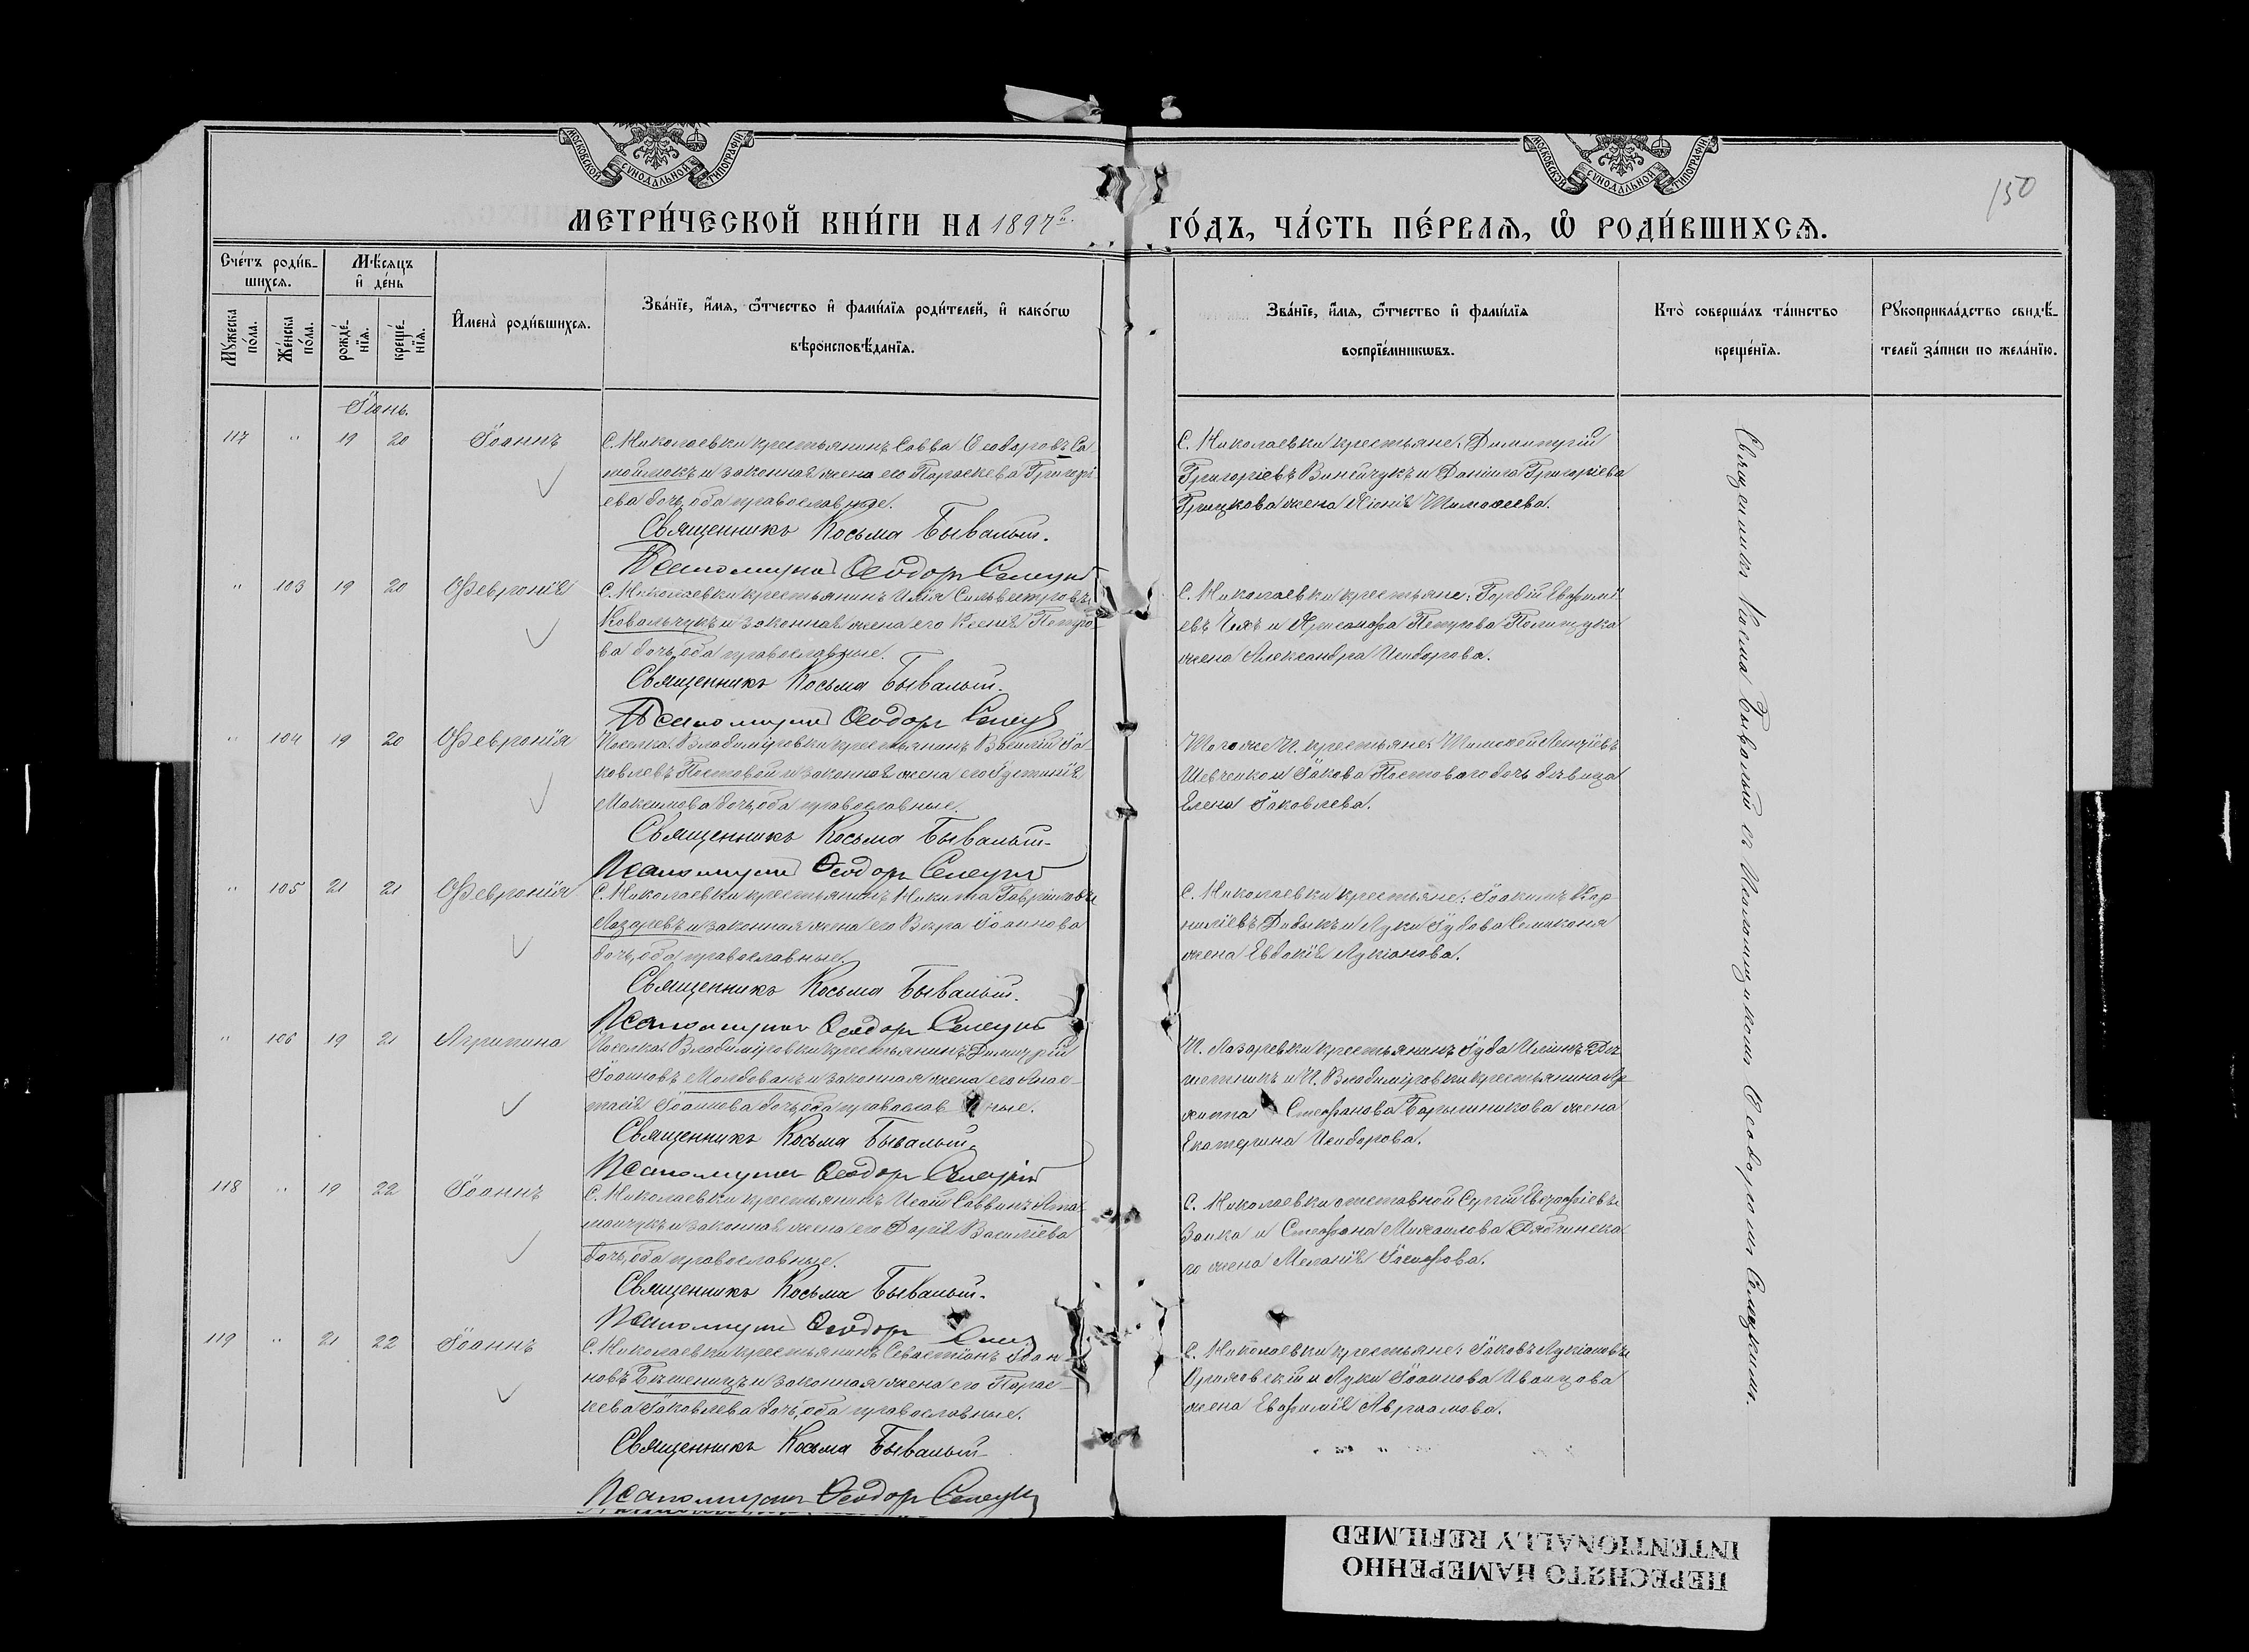 МОСКОВСКОЙ СѴНОДАЛЬНОЙ ТИПОГРАФІИ
МОСКОВСКОЙ СѴНОДАЛЬНОЙ ТИПОГРАФІИ
150
МЕТРИ́ЧЕСКОЙ КНИ́ГИ НА 1897 ГО́ДЪ, ЧА́СТЬ ПЕ́РВАѦ, Ѡ҆ РОДИ́ВШИХСѦ.
Сче́тъ роди́в-
шихсѧ.
Мꙋ́жеска по́ла.
Же́нска по́ла.
Мѣ́сяцъ
и҆ де́нь
рожде́-нїѧ.
креще́-нїѧ.
И҆мена̀ роди́вшихсѧ.
Зва́нїе, и҆́мѧ, ѻ҆́тчество и҆ фами́лїѧ роди́телей, и҆ како́гѡ
вѣроисповѣ́данїѧ.
Зва́нїе, и҆́мѧ, ѻ҆́тчество и҆ фами́лїѧ
воспрїе́мникѡвъ.
Кто̀ соверша́лъ та́инство
креще́нїѧ.
Рꙋкоприкла́дство свидѣ́-
телей за́писи по жела́нїю.
Іюнь.
117 " 19 20 Іоаннъ
С. Николаевки крестьянинъ Савва Ѳеодоровъ Са-
мойлюкъ и законная жена его Параскева Григорі-
ева дочь, оба православные.
Священникъ Косьма Бывалый.
Псаломщикъ Ѳеодоръ
С. Николаевки крестьяне: Димитрій
Григоріевъ Винничукъ и Даніила Григоріева
Грицкова жена Ксенія Тимоѳеева.
" 103 19 20 Февронія
С. Николаевки крестьянинъ Илія Сильвестровъ
Ковальчукъ и законная жена его Ксенія Петро-
ва дочь, оба православные.
Священникъ Косьма Бывалый.
Псаломщикъ Ѳеодоръ
С. Николаевки крестьяне: Гордій Евѳимі-
евъ и Петрова
жена Александра Исидорова.
" 104 19 20 Февронія
Поселка Владиміровки крестьянинъ Василій Іа-
ковлевъ Постовой и законная жена его Іустинія
Максимова дочь, оба православные.
Священникъ Косьма Бывалый.
Псаломщикъ Ѳеодоръ
Того же П. крестьяне: Тимоѳей
Шевченко и Іакова Постоваго дочь дѣвица
Елена Іаковлева.
" 105 21 21 Февронія
С. Николаевки крестьянинъ Никита Гавриловъ
Лазаревъ и законная жена его Вѣра Іоаннова
дочь, оба православные.
Священникъ Косьма Бывалый.
Псаломщикъ Ѳеодоръ
С. Николаевки крестьяне: Іоакимъ Кор-
ниліевъ Дидыкъ и Луки Іудова Семиконя
жена Евдокія Лукіанова.
" 106 19 21 Агрипина
Поселка Владиміровки крестьянинъ Димитрій
Іоанновъ Молдованъ и законная жена его Анас-
тасія Іоаннова дочь, оба православные.
Священникъ Косьма Бывалый.
Псаломщикъ Ѳеодоръ
П. Лазаревки крестьянинъ Іуда Иліинъ
и П. Владиміровки крестьянина
Стефанова Барышникова жена
Екатерина Исидорова.
118 " 19 22 Іоаннъ
С. Николаевки крестьянинъ Исаій Саввинъ Ата-
манчукъ и законная жена его Дарія Василіева
дочь, оба православные.
Священникъ Косьма Бывалый.
Псаломщикъ Ѳеодоръ
С. Николаевки отставной Сергій
Заика и Стефана Михаилова
го жена Меланія Іосифова.
119 " 21 22 Іоаннъ
С. Николаевки крестьянинъ Севастіанъ Іоан-
новъ и законная жена его Парас-
кева Іаковлева дочь, оба православные.
Священникъ Косьма Бывалый.
Псаломщикъ Ѳеодоръ
С. Николаевки крестьяне: Іаковъ Лукіановъ
и Луки Іоаннова Иванцова
жена Евѳимія Авраамова.
Священникъ Косьма Бывалый съ Псаломщикомъ Ѳеодоромъ
ПЕРЕСНЯТО НАМЕРЕННО
INTENTIONALLY REFILMED